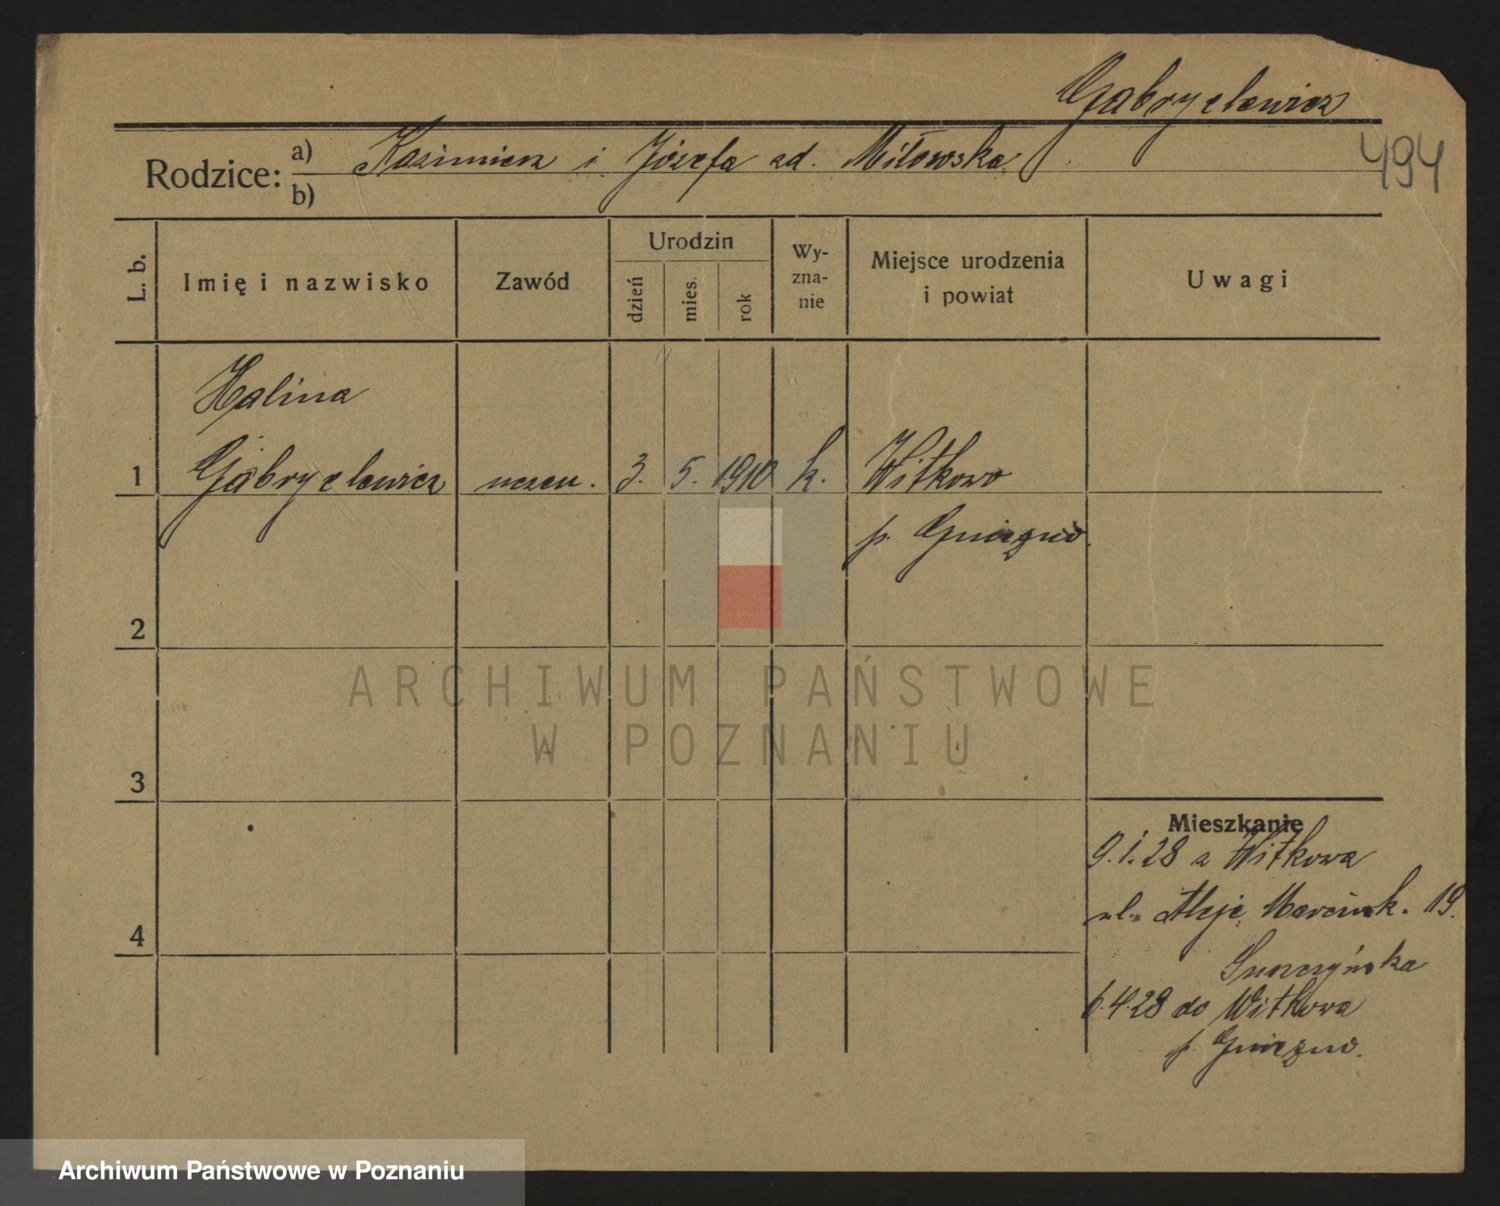 Gabryelewicz
494
Rodzice: a) Kazimierz i Józefa zd. Miłowska
b)
L. b.
Imię i nazwisko
Zawód
Urodzin
dzień
mies.
rok
Wy-
zna-
nie
Miejsce urodzenia
i powiat
Uwagi
Halina
1 Gabryelewicz uczen. 3. 5. 1910 k. Witkowo
p. Gniezno.
2
3
4
ARCHIWUM PAŃSTWOWE
W POZNANIU
Mieszkanie
9.1.28 z Witkowa
ul. Aleje Marcink. 19.
6.4.28 do Witkowa
p. Gniezno.
Archiwum Państwowe w Poznaniu